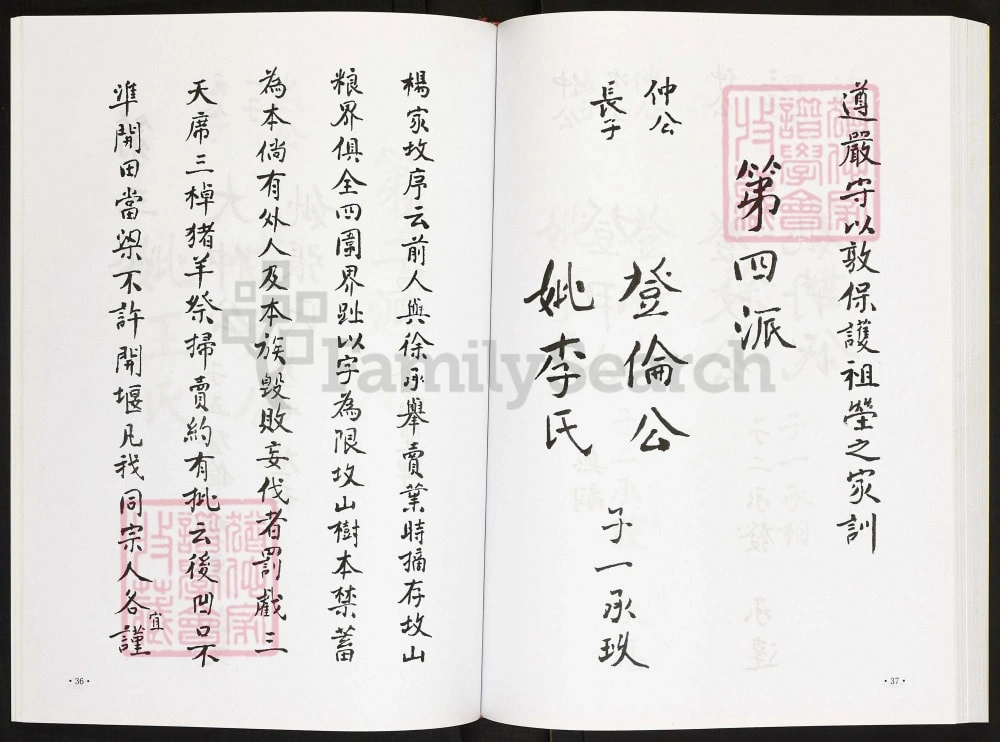 楊家坟序云前人與徐承舉賣業時摘存坟山
粮界俱全四圍界趾以字為限坟山樹本禁蓄
為本倘有外人及本族毀敗妄伐者罰戲三
天席三棹猪羊祭掃賣約有批云後凹口不
準開田當梁不許開堰凡我同宗人各宜謹
·36·
遵嚴守以敦保護祖塋之家訓
第四派
仲公
長子
登倫公
子一承玖
妣李氏
·37·
FamilySearch